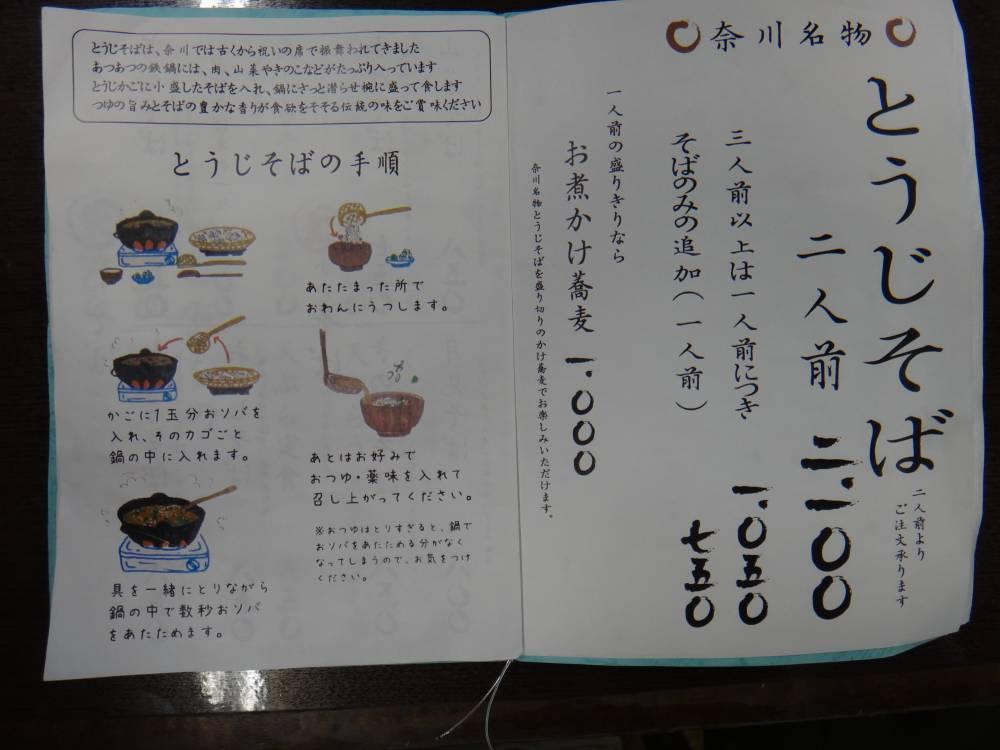 奈川名物
とうじそば
二人前より
ご注文承ります
二人前 二、一〇〇
三人前以上は一人前につき 一、〇五〇
そばのみの追加(一人前) 七五〇
一人前の盛りきりなら
お煮かけ蕎麦 一、〇〇〇
奈川名物とうじそばを盛り切りのかけ蕎麦でお楽しみいただけます。
とうじそばは、奈川では古くから祝いの席で振舞われてきました
あつあつの鉄鍋には、肉、山菜やきのこなどがたっぷり入っています
とうじかごに小盛したそばを入れ、鍋にさっと潜らせ椀に盛って食します
つゆの旨みとそばの豊かな香りが食欲をそそる伝統の味をご賞味ください
とうじそばの手順
かごに1玉分おソバを
入れ、そのカゴごと
鍋の中に入れます。
具を一緒にとりながら
鍋の中で数秒おソバ
をあたためます。
あたたまった所で
おわんにうつします。
あとはお好みで
おつゆ・薬味を入れて
召し上がってください。
※おつゆはとりすぎると、鍋で
おソバをあたためる分がなく
なってしまうので、お気をつけ
ください。